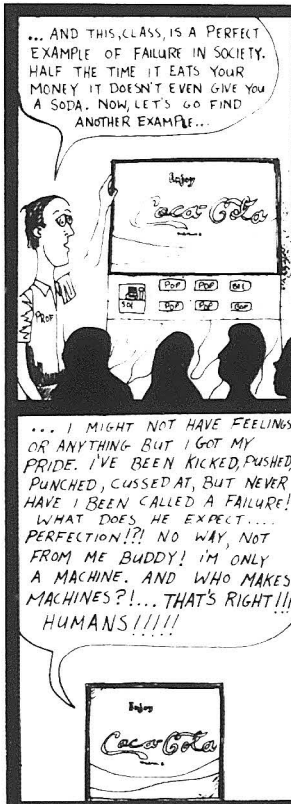 ... AND THIS, CLASS, IS A PERFECT
EXAMPLE OF FAILURE IN SOCIETY.
HALF THE TIME IT EATS YOUR
MONEY IT DOESN'T EVEN GIVE YOU
A SODA. NOW, LET'S GO FIND
ANOTHER EXAMPLE...
Enjoy
Coca-Cola
POP POP
50¢
POP POP
PROF
... I MIGHT NOT HAVE FEELINGS
OR ANYTHING BUT I GOT MY
PRIDE. I'VE BEEN KICKED, PUSHED,
PUNCHED, CUSSED AT, BUT NEVER
HAVE I BEEN CALLED A FAILURE!
WHAT DOES HE EXPECT....
PERFECTION!?! NO WAY, NOT
FROM ME BUDDY! I'M ONLY
A MACHINE. AND WHO MAKES
MACHINES?!... THAT'S RIGHT!!!
HUMANS!!!!!
Enjoy
Coca-Cola